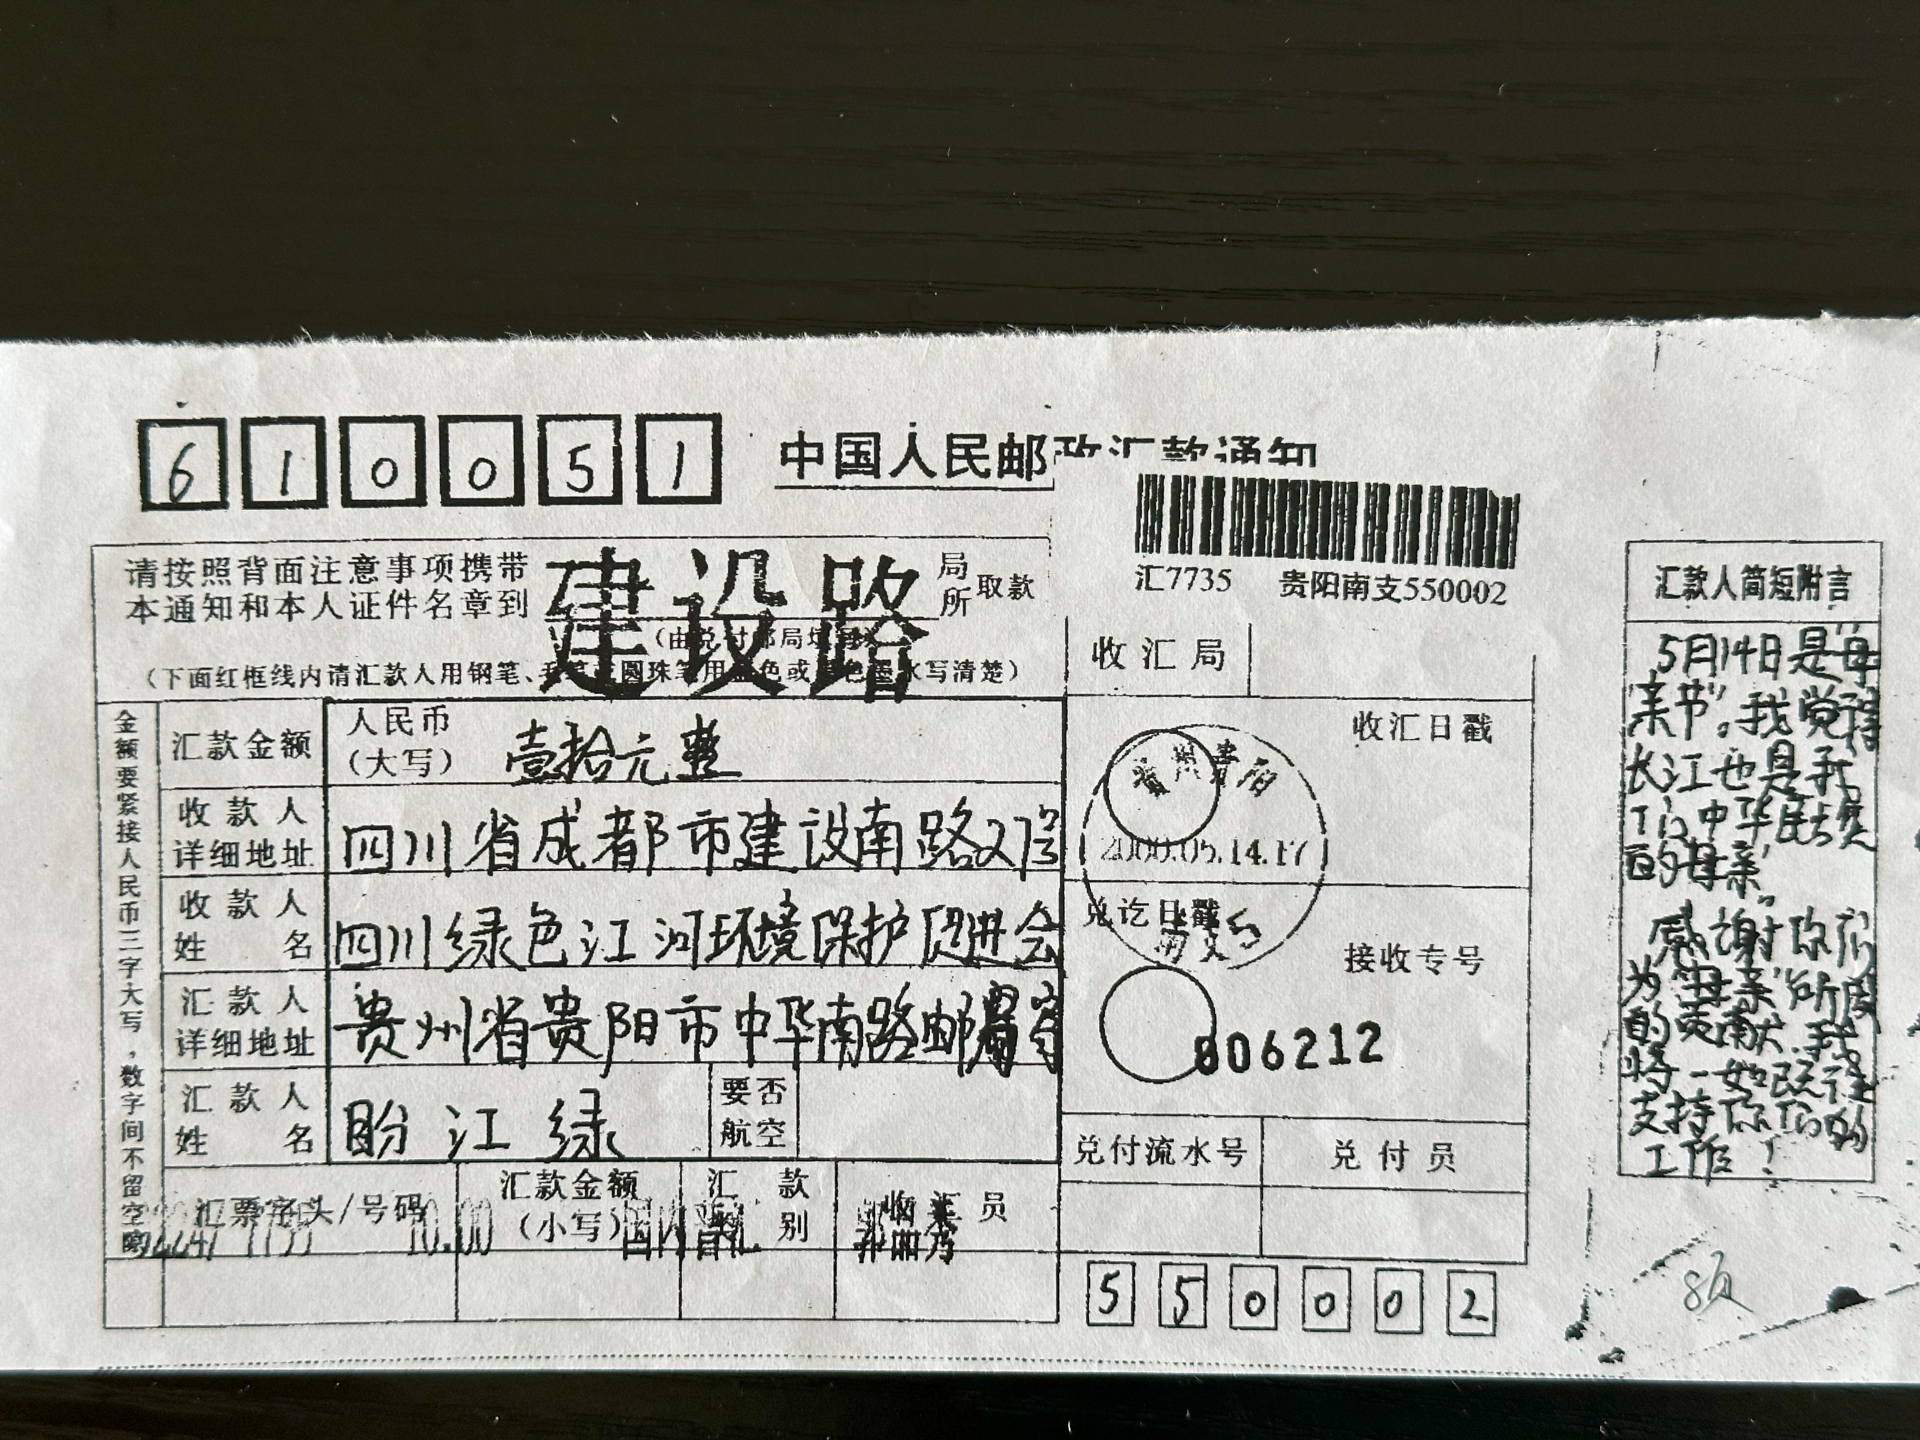 610051
中国人民邮政汇款通知
汇7735 贵阳南支550002
请按照背面注意事项携带
本通知和本人证件名章到
建设路
局所取款
(由兑付邮局填写)
(下面红框线内请汇款人用钢笔、毛笔或圆珠笔用蓝色或黑色墨水写清楚)
金额要紧接人民币三字大写,数字间不留空隙
汇款金额
人民币
(大写)
壹拾元整
收款人
详细地址
四川省成都市建设南路27号
收款人
姓名
四川绿色江河环境保护促进会
汇款人
详细地址
贵州省贵阳市中华南路邮局
汇款人
姓名
盼江绿
要否
航空
汇票字头/号码
7735
10.00
汇款金额
(小写)
国内普汇
汇款
别
收汇员
收汇局
收汇日戳
贵州贵阳
2000.05.14.17
兑讫日戳
接收专号
006212
兑付流水号
兑付员
550002
汇款人简短附言
5月14日是“母
亲节”。我觉得
长江也是我
们中华民族
的母亲。
感谢你们
为“母亲”所做
的贡献.我
将一如既往
支持你们的
工作!